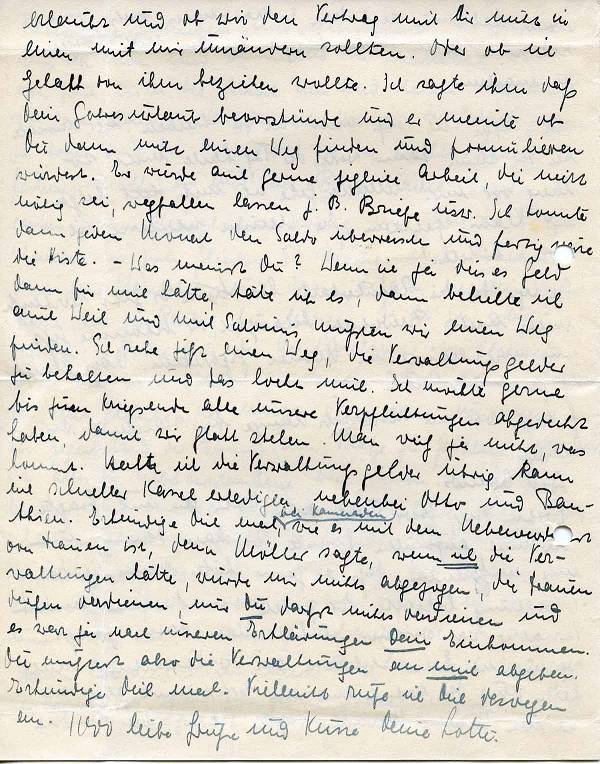 erlaubt und ob wir den Vertrag mit Dir nicht in
einen mit mir umändern sollten. Oder ob ich
Gehalt von ihm beziehen wollte. Ich sagte ihm daß
Dein bevorstünde und er meinte ob
Du dann nicht einen Weg finden und formulieren
würdest. Er würde auch gerne jegliche Arbeit, die nicht
nötig sei, wegfallen lassen z. B. Briefe usw. Ich könnte
dann jeden Monat den Saldo überweisen und fertig wäre
die Kiste. – Was meinst Du? Wenn ich
dann für mich hätte, täte ich es, dann behielte ich
auch Weil und müßten wir einen Weg
finden. Ich sehe jetzt einen Weg, die Verwaltungsgelder
zu behalten und das lockt mich. Ich möchte gerne
bis zum Kriegsende alle unsere Verpflichtungen abgedeckt
haben, damit wir glatt stehen. Man weiß ja nicht, was
kommt. ich die Verwaltungsgelder übrig kann
ich schneller Kassel erledigen nebenbei Otto und
Erkundige Dich mal bei Kameraden wie es mit dem
von Frauen ist, denn Möller sagte, wenn ich die Ver-
waltungen hätte, würde mir nichts abgezogen, die Frauen
dürfen verdienen, nur Du darfst nichts verdienen und
es war ja nach unseren Erklärungen Dein Einkommen.
Du müßtest also die Verwaltungen an mich abgeben.
Erkundige Dich mal. Vielleicht rufe ich Dich deswegen
an. 1000 liebe Grüße und Küsse Deine Lotte.